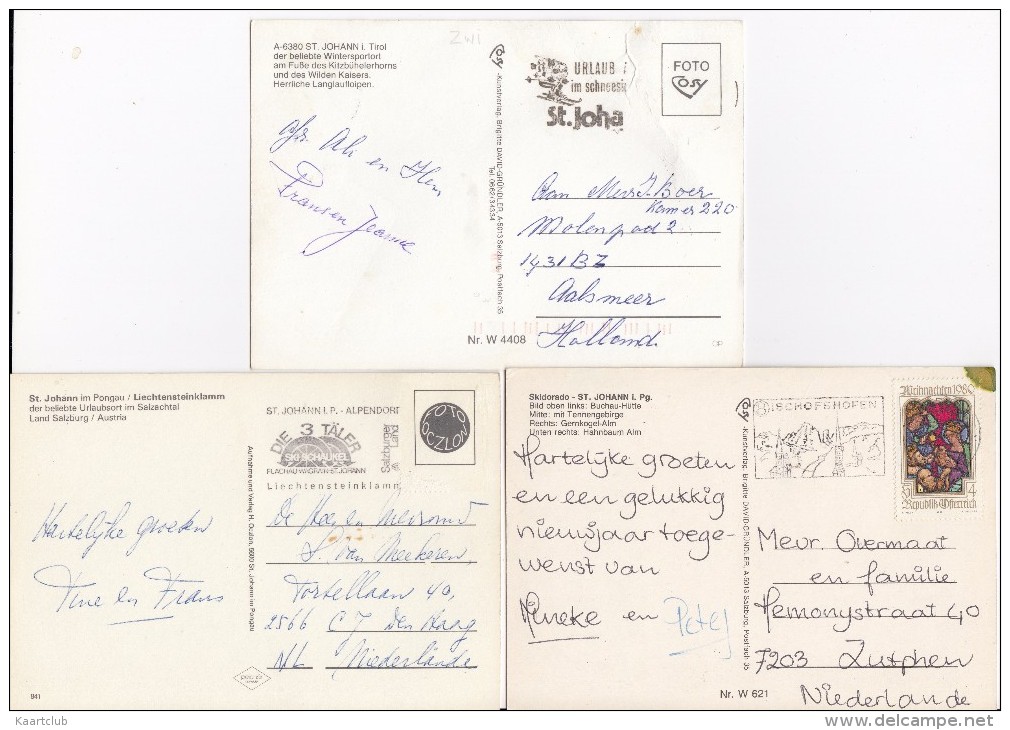 A-6380 ST. JOHANN i. Tirol
der beliebte Wintersportort
am Fuße des Kitzbühelerhorns
und des Wilden Kaisers.
Herrliche Langlaufloipen.
Zwi
URLAUB
im schneesi
St. Joha
FOTO
Cosy
Cosy -Kunstverlag, Brigitte DAVID-GRÜNDLER, A-5013 Salzburg, Postfach 35
Tel. 0662/34334
Ali en Hem
Fransen Jeanne
Aan Mevr. J. Boer
Kamer 220
Molenpad 2
1431 BZ
Aalsmeer
Holland.
Nr. W 4408
St. Johann im Pongau / Liechtensteinklamm
der beliebte Urlaubsort im Salzachtal
Land Salzburg / Austria
ST. JOHANN I. P. - ALPENDORF
DIE 3 TÄLER
SKI-SCHAUKEL
FLACHAU-WAGRAIN-ST.JOHANN
Salzburger Land
Liechtensteinklamm
FOTO
OCZLON
Aufnahme und Verlag H. Oczlon, 5600 St. Johann im Pongau
Hartelijke groeten
Tine en Frans
De Heer en Mevrouw
v. Meekeren,
Tortellaan 40,
2566 CJ Den Haag
NL Niederlände
941
Skidorado - ST. JOHANN i. Pg.
Bild oben links: Buchau-Hütte
Mitte: mit Tennengebirge
Rechts: Gernkogel-Alm
Unten rechts: Hahnbaum Alm
Hartelijke groeten
en een gelukkig
nieuwjaar toege-
wenst van
Mineke en Peter
Cosy Kunstverlag, Brigitte DAVID-GRÜNDLER, A-5013 Salzburg, Postfach 35
BISCHOFSHOFEN
Weihnachten 1980
S 4
Republik Österreich
Mevr. Overmaat
en familie
Hemonystraat 40
7203 Zutphen
Niederlande
Nr. W 621
Kaartclub
www.delcampe.net